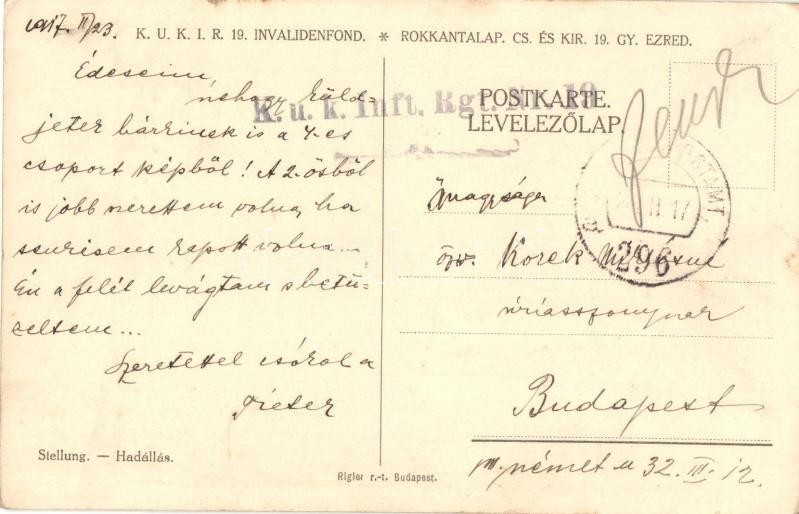 1917. II/23.
K. U. K. I. R. 19. INVALIDENFOND. * ROKKANTALAP. CS. ÉS KIR. 19. GY. EZRED.
Édeseim,
nehogy küld-
jetek bárkinek is a 4-es
csoport képből! A 2-ősből
is jobb szerettem volna, ha
senkisem kapott volna...
Én a felét levágtam s betű-
zeltem...
Szeretettel csókol a
Péter
Stellung. — Hadállás.
Rigler r.-t. Budapest.
K. u. k. Inft. Rgt. Nr. 19
POSTKARTE.
LEVELEZŐLAP.
II 17
296
Őnagysága
özv. Korek
úriasszonynak
Budapest
német u 32. III. 12.